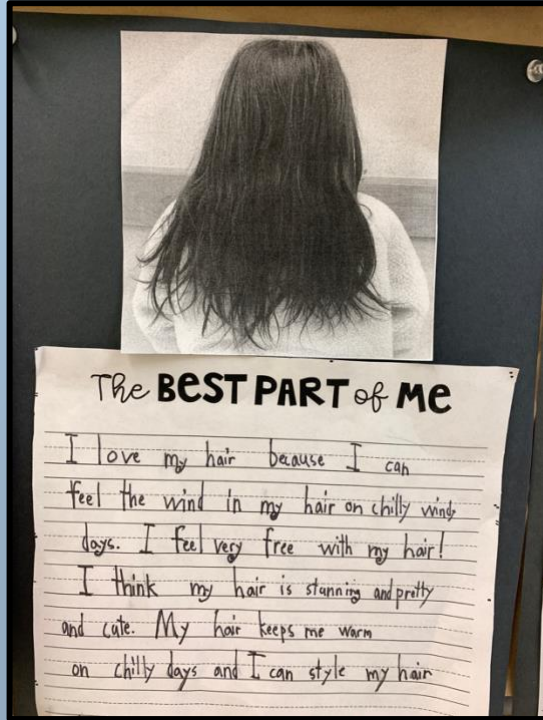 The BEST PART of Me
I love my hair because I can
feel the wind in my hair on chilly windy
days. I feel very free with my hair!
I think my hair is stunning and pretty
and cute. My hair keeps me warm
on chilly days and I can style my hair